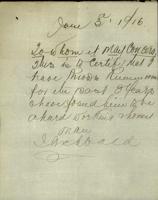 June 3rd 1916
To Whom it May Concern,
This is to Certify that I
have known
for the past 8 years
& have found him to be
a hard working & honest
man